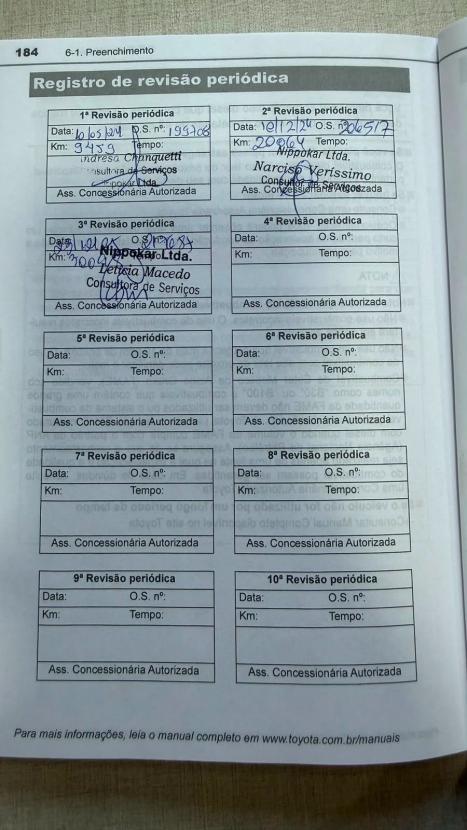 184 6-1. Preenchimento
Registro de revisão periódica
1ª Revisão periódica
Data: 10/05/24 O.S. nº: 199708
Km: 9459 Tempo:
Andresa Chinquetti
Consultora de Serviços
Nippokar Ltda.
Ass. Concessionária Autorizada
2ª Revisão periódica
Data: 10/12/24 O.S. nº: 206517
Km: 20064 Tempo:
Nippokar Ltda.
Narciso Veríssimo
Consultor de Serviços
Ass. Concessionária Autorizada
3ª Revisão periódica
Data: O.S. nº:
Km: Tempo:
Nippokar Ltda.
Letícia Macedo
Consultora de Serviços
Ass. Concessionária Autorizada
4ª Revisão periódica
Data: O.S. nº:
Km: Tempo:
Ass. Concessionária Autorizada
5ª Revisão periódica
Data: O.S. nº:
Km: Tempo:
Ass. Concessionária Autorizada
6ª Revisão periódica
Data: O.S. nº:
Km: Tempo:
Ass. Concessionária Autorizada
7ª Revisão periódica
Data: O.S. nº:
Km: Tempo:
Ass. Concessionária Autorizada
8ª Revisão periódica
Data: O.S. nº:
Km: Tempo:
Ass. Concessionária Autorizada
9ª Revisão periódica
Data: O.S. nº:
Km: Tempo:
Ass. Concessionária Autorizada
10ª Revisão periódica
Data: O.S. nº:
Km: Tempo:
Ass. Concessionária Autorizada
Para mais informações, leia o manual completo em www.toyota.com.br/manuais